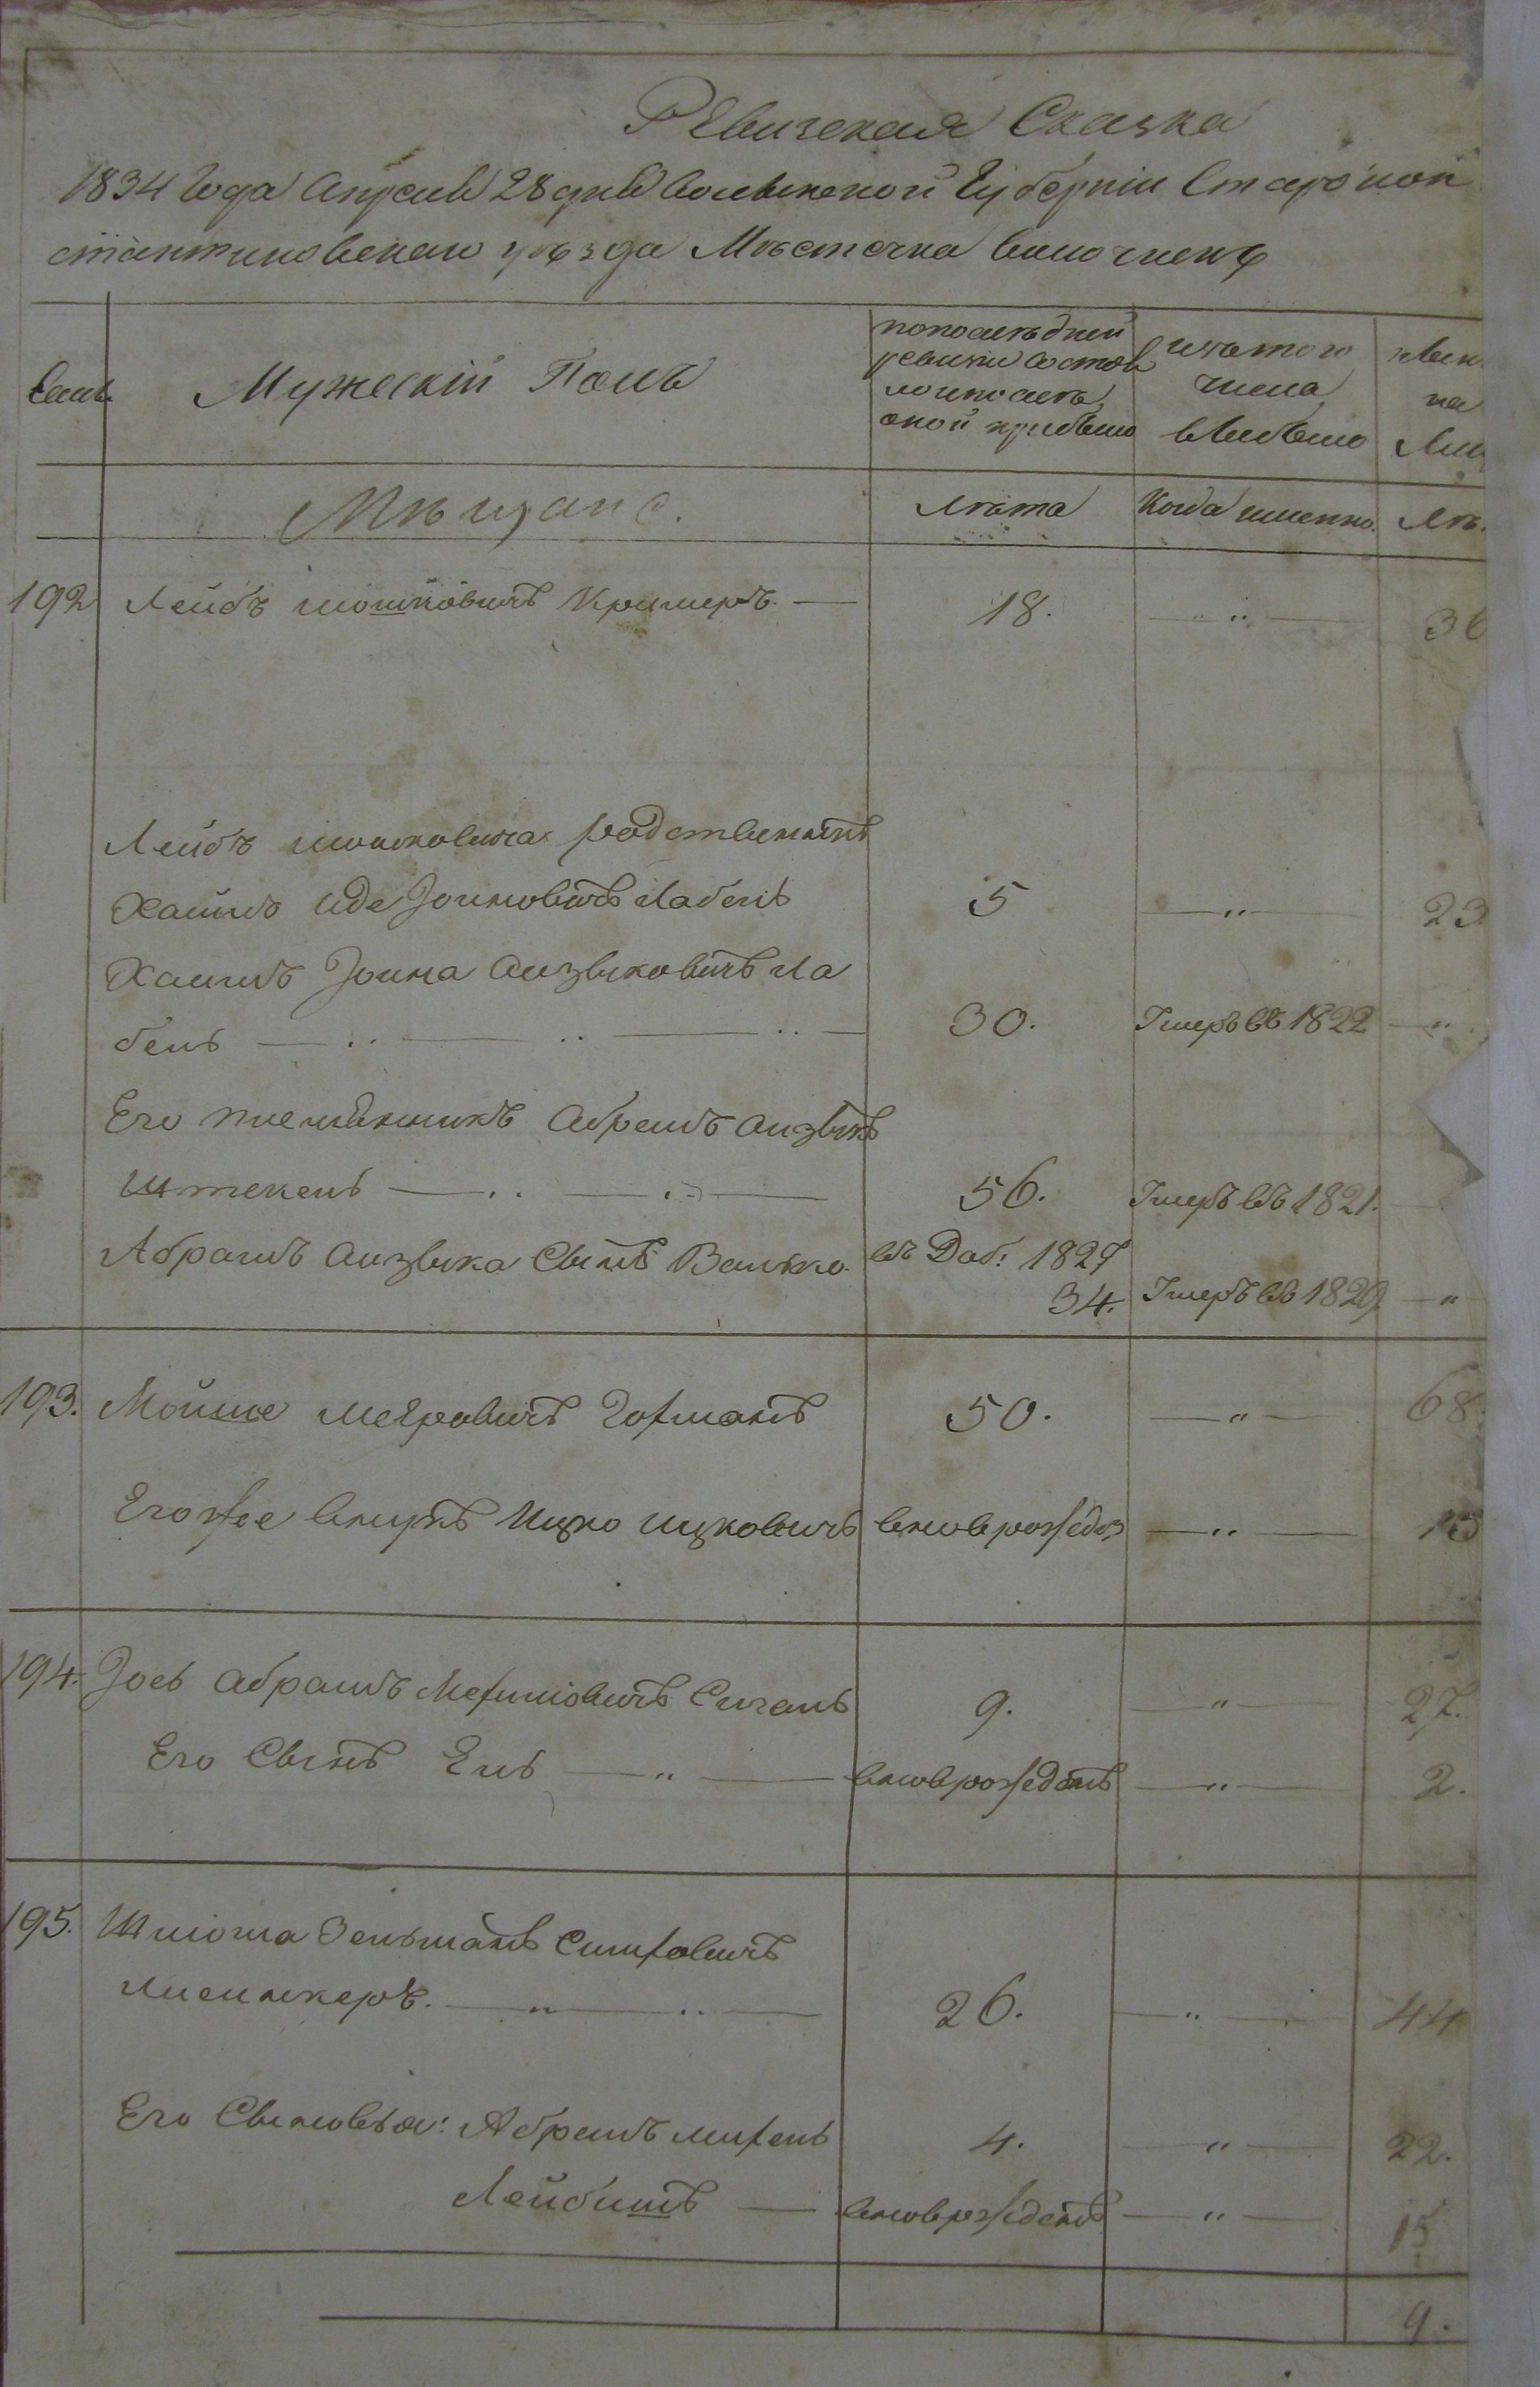 Ревизская Сказка
1834 Года Апреля 28 дня Волынской Губерніи Старокон
стантиновскаго уѣзда Мѣстечка Волочискъ
Мужескій Полъ
по последней
ревизіи состоя
ло и после
оной прибыло
изъ того
числа
выбыло
на
Мѣщанъ.
Лѣта
Когда именно.
Лѣ.
192 Лейбъ Мошковичъ Кримеръ — 18. — „ — 36
Лейбъ Мошковича родственникъ
Хаимъ Иде Іоиновичъ Лабень 5 — „ — 23
Хаимъ Іоина Аизыковичъ Ла
бень — 30. Умеръ въ 1822 — „
Его племѣнникъ Абрамъ Аизыкъ
Штекель — 56. Умеръ въ 1821.
Абрамъ Аизыка Сынъ Валько въ Доб: 1827
34. Умеръ въ 1829 — „
193. Мойше Меѣровичъ Гофманъ 50. — „ — 68.
Егоже внукъ Ицко Ицковичъ вновърожден — „ — 13
194. Іось Абрамъ Мехиловичъ Сигаль 9. — „ — 27.
Его СынъЕль — „ — вновърожденъ — „ — 2.
195. Шліома Зельманъ Симховичъ
26. — „ — 44
Его Сыновья: Абрамъ Михель 4. — „ — 22.
Лейбишъ — вновьрожденъ — „ — 15
9.